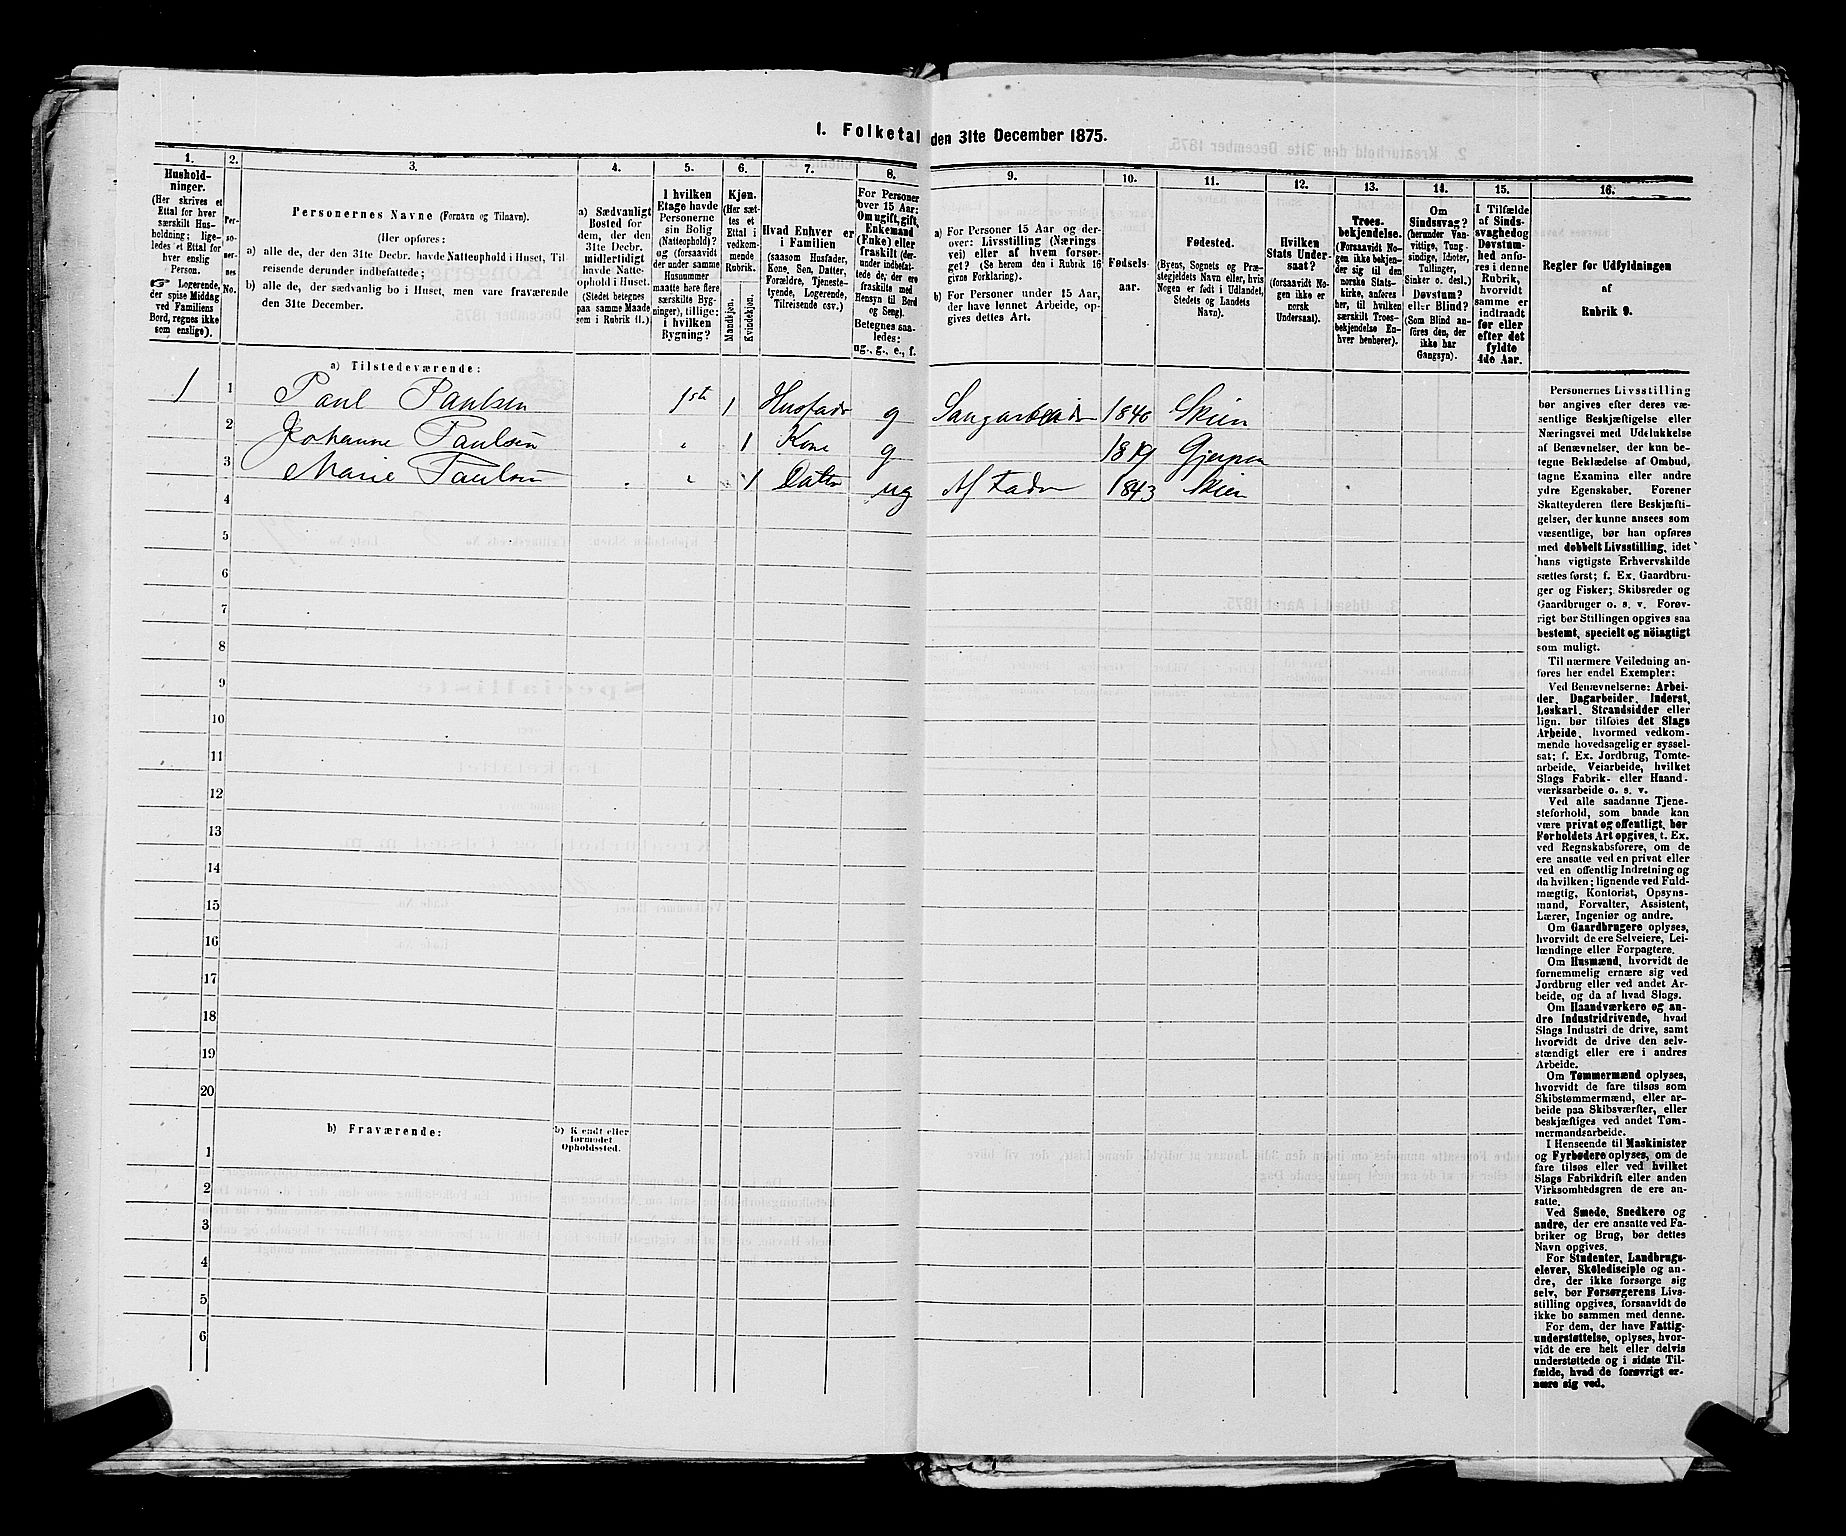 1. Folketal den 31te December 1875.
1. 2. 3. 4. 5. 6. 7. 8. 9. 10. 11. 12. 13. 14. 15. 16.
Hushold-
ninger.
(Her skrives et
Ettal for hver
særskilt Hus-
holdning; lige-
ledes et Ettal for
hver enslig
Person.
☞ Logerende,
der spise Middag
ved Familiens
Bord, regnes ikke
som enslige).
Per-
so-
ner-
nes
No.
Personernes Navne (Fornavn og Tilnavn).
(Her opføres:
a) alle de, der den 31te Decbr. havde Natteophold i Huset, Til-
reisende derunder indbefattede;
b) alle de, der sædvanlig bo i Huset, men vare fraværende
den 31te December.
a) Sædvanligt
Bosted for
dem, der den
31te Decbr.
midlertidigt
havde Natte-
ophold i Huset.
(Stedet betegnes
paa samme Maade
som i Rubrik 11.)
I hvilken
Etage havde
Personerne
sin Bolig
(Natteophold)?
og (forsaavidt
der under samme
Husnummer
maatte høre flere
særskilte Byg-
ninger), tillige:
i hvilken
Bygning?
Kjøn.
(Her sæt-
tes et
Ettal i
vedkom-
mende
Rubrik.
Mandkjøn.
Kvindekjøn.
Hvad Enhver er
i Familien
(saasom Husfader,
Kone, Søn, Datter,
Forældre, Tjeneste-
tyende, Logerende,
Tilreisende osv.)
For Personer
over 15 Aar:
Om ugift, gift,
Enkemand
(Enke) eller
fraskilt (der-
under indbefat-
tede de, der ere
fraskilte med
Hensyn til Bord
og Seng).
Betegnes saa-
ledes:
ug., g., e., f.
a) For Personer 15 Aar og der-
over: Livsstilling (Nærings
vei) eller af hvem forsør-
get? (Se herom den i Rubrik 16
givne Forklaring).
b) For Personer under 15 Aar,
der have lønnet Arbeide, op-
gives dettes Art.
Fødsels-
aar.
Fødested.
(Byens, Sognets og Præ-
stegjeldets Navn eller, hvis
Nogen er født i Udlandet,
Stedets og Landets
Navn).
Hvilken
Stats Under-
saat?
(forsaavidt No-
gen ikke er
norsk
Undersaat).
Troes-
bekjendelse.
(Forsaavidt No-
gen ikke bekjen-
der sig til den
norske Stats-
kirke, anføres
her, til hvilken
særskilt Troes-
bekjendelse En-
hver henhører).
Om
Sindssvag?
(herunder Van-
vittige, Tung-
sindige, Idioter,
Tullinger,
Sinker o. desl.)
Døvstum?
eller Blind?
(Som Blind an-
føres den, der
ikke har
Gangsyn).
I Tilfælde
af Sinds-
svaghedog
Døvstum-
hed anfø-
res i denne
Rubrik,
hvorvidt
samme er
indtraadt
før eller
efter det
fyldte
4de Aar.
Regler for Udfyldningen
af
Rubrik 9.
a) Tilstedeværende:
1 1 Paul Paulsen 1ste 1 Husfadr g 1840 Skien
2 Johanne Paulsen " 1 Kone g 1819 Gjerpen
3 Marie Paulsen " 1 Datter ug Af Fader 1843 Skien
4
5
6
7
8
9
10
11
12
13
14
15
16
17
18
19
20
b) Fraværende:
b) Kjendt eller
formodet
Opholdssted.
1
2
3
4
5
6
Personernes Livsstilling
bør angives efter deres væ-
sentlige Beskjæftigelse eller
Næringsvei med Udelukkelse
af Benævnelser, der kun be-
tegne Beklædelse af Ombud,
tagne Examina eller andre
ydre Egenskaber. Forener
Skatteyderen flere Beskjæfti-
gelser, der kunne ansees som
væsentlige, bør han opføres
med dobbelt Livsstilling, idet
hans vigtigste Erhvervskilde
sættes først; f. Ex. Gaardbru-
ger og Fisker; Skibsreder og
Gaardbruger o. s. v. Forøv-
rigt bør Stillingen opgives saa
bestemt, specielt og nöiagtigt
som muligt.
Til nærmere Veiledning an-
føres her endel Exempler:
Ved Benævnelserne: Arbei-
der, Dagarbeider, Inderst,
Løskarl, Strandsidder eller
lign. bør tilføies det Slags
Arbeide, hvormed vedkom-
mende hovedsagelig er syssel-
sat; f. Ex. Jordbrug, Tomte-
arbeide, Veiarbeide, hvilket
Slags Fabrik- eller Haand-
værksarbeide o. s. v.
Ved alle saadanne Tjene-
steforhold, som baade kan
være privat og offentligt, bør
Forholdets Art opgives, t. Ex.
ved Regnskabsførere, om de
ere ansatte ved en privat eller
ved en offentlig Indretning og
da hvilken; lignende ved Fuld-
mægtig, Kontorist, Opsyns-
mand, Forvalter, Assistent,
Lærer, Ingeniør og andre.
Om Gaardbrugere oplyses,
hvorvidt de ere Selveiere, Lei-
lændinge eller Forpagtere.
Om Husmænd, hvorvidt de
fornemmelig ernære sig ved
Jordbrug eller ved andet Ar-
beide, og da af hvad Slags.
Om Haandværkere og an-
dre Industridrivende, hvad
Slags Industri de drive, samt
hvorvidt de drive den selv-
stændigt eller ere i andres
Arbeide.
Om Tømmermænd oplyses,
hvorvidt de fare tilsøs som
Skibstømmermænd, eller ar-
beide paa Skibsværfter, eller
beskjæftiges ved andet Tøm-
mermandsarbeide.
I Henseende til Maskinister
og Fyrbødere oplyses, om de
fare tilsøs eller ved hvilket
Slags Fabrikdrift eller anden
Virksomhedsgren de ere an-
satte.
Ved Smede, Snedkere og
andre, der ere ansatte ved Fa-
briker og Brug, bør dettes
Navn opgives.
For Studenter, Landbrugs-
elever, Skoledisciple og an-
dre, der ikke forsørge sig
selv, bør Forsørgerens Livs-
stilling opgives, forsaavidt de
ikke bo sammen med denne.
For dem, der have Fattig-
understøttelse, oplyses, hvor-
vidt de ere helt eller delvis
understøttede og i sidste Til-
fælde, hvad de forøvrigt er-
nære sig ved.